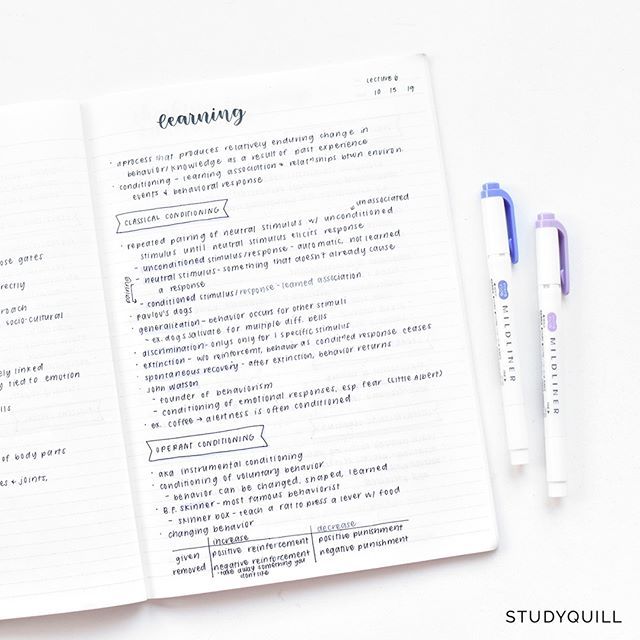 ose gates
rectly
roach
socio-cultural
ely linked
ly tied to emotion
lls
of body parts
es & joints,
Lecture 6
10 15 19
learning
• a process that produces relatively enduring change in
behavior/knowledge as a result of past experience
• conditioning - learning association & relatnships btwn environ.
events & behavioral response
CLASSICAL CONDITIONING
unassociated
• repeated pairing of neutral stimulus w/ unconditioned
stimulus until neutral stimulus elicits response
- unconditioned stimulus/response - automatic, not learned
- neutral stimulus - something that doesn't already cause
a response
- conditioned stimulus/response - learned association
• Pavlov's dogs
• generalization - behavior occurs for other stimuli
- ex. dogs salivate for multiple diff. bells
• discrimination - onlys only for 1 specific stimulus
• extinction - w/o reinforcemt, behavior as conditned response ceases
• spontaneous recovery - after extinction, behavior returns
• John Watson
- founder of behaviorism
- conditioning of emotional responses, esp. fear (Little Albert)
• ex. coffee → alertness is often conditioned
OPERANT CONDITIONING
• aka instrumental conditioning
• conditioning of voluntary behavior
- behavior can be changed, shaped, learned
• B.F. Skinner - most famous behaviorist
- skinner box - teach a rat to press a lever w/ food
• changing behavior
increase decrease
given positive reinforcement positive punishment
removed negative reinforcement negative punishment
- take away something you
don't like
MILDLINER
MILDLINER
STUDYQUILL